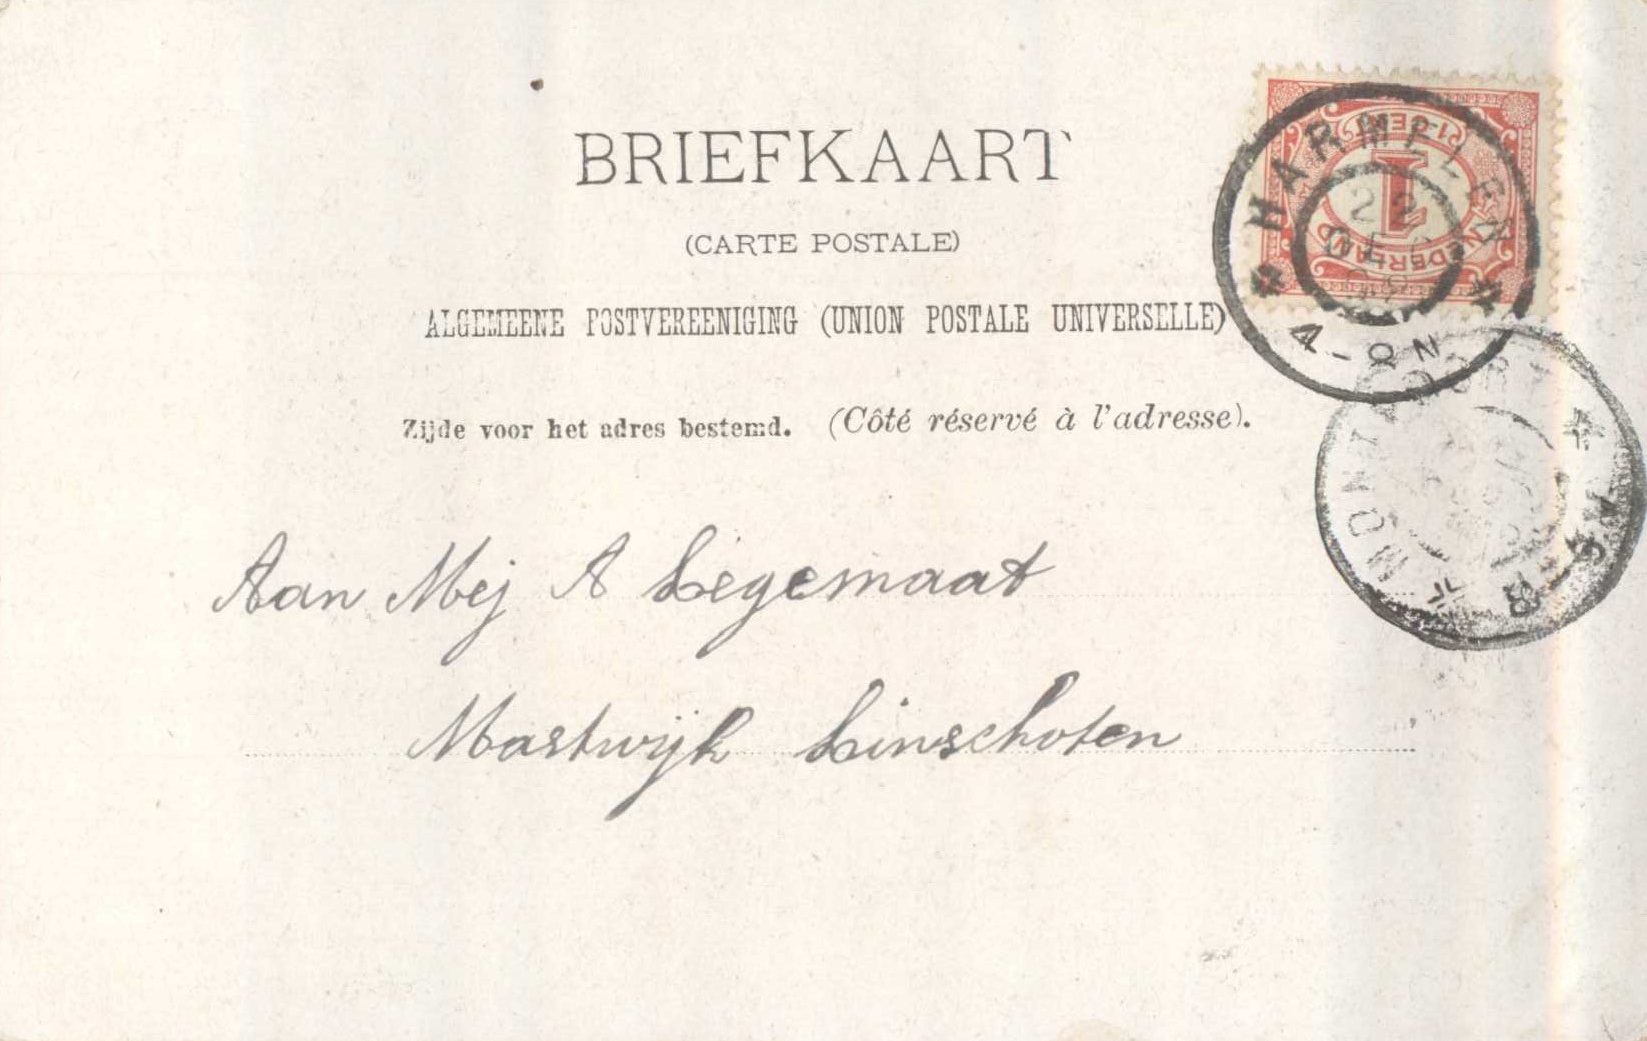 BRIEFKAART
(CARTE POSTALE)
ALGEMEENE POSTVEREENIGING (UNION POSTALE UNIVERSELLE)
Zijde voor het adres bestemd. (Côté réservé à l'adresse).
Aan Mej A Legemaat
Mastwijk Linschoten
1
NEDERLAND
HARMELEN
22
4-8N
MONTFOORT
8-